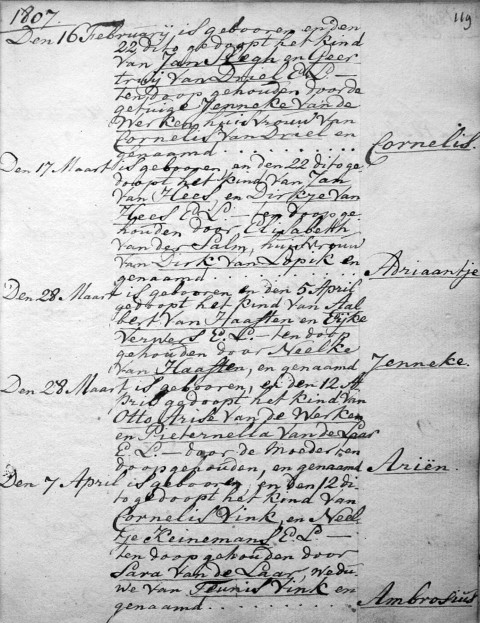 1807.
119
Den 16 Februarij is gebooren en den
22 dito gedoopt het kind
van Jan Slegh en Geer
truij van Driel E.L. —
ten doop gehouden door de
getuige Jenneke van de
Werken, huisvrouw van
Cornelis van Driel en
genaamd . . . . . . . . . . Cornelis.
Den 17 Maart is gebooren, en den 22 dito ge
doopt het kind van Jan
van Hees, en Dirkje van
Hees E.L. — ten doop ge
houden door Elisabeth
van der Salm, huisvrouw
van Dirk van Lopik en
genaamd . . . . . . . . . . Adriaantje
Den 28 Maart is gebooren en den 5 April
gedoopt het kind van Aal
bert van Haaften en Eijke
Verwers E.L. — ten doop
gehouden door Neelke
van Haaften, en genaamd Jenneke.
Den 28 Maart is gebooren, en den 12 A
pril gedoopt het kind van
Otto Arise van de Werken
en Pieternella van de Laar
E.L. — door de Moeder ten
doop gehouden, en genaamd Ariën.
Den 7 April is gebooren, en den 12 di
to gedoopt het kind van
Cornelis Vink, en Neel
tje Keinemans E.L. —
ten doop gehouden door
Sara van de Laar, wedu
we van Teunis Vink en
genaamd . . . . . . . . . . Ambrosius